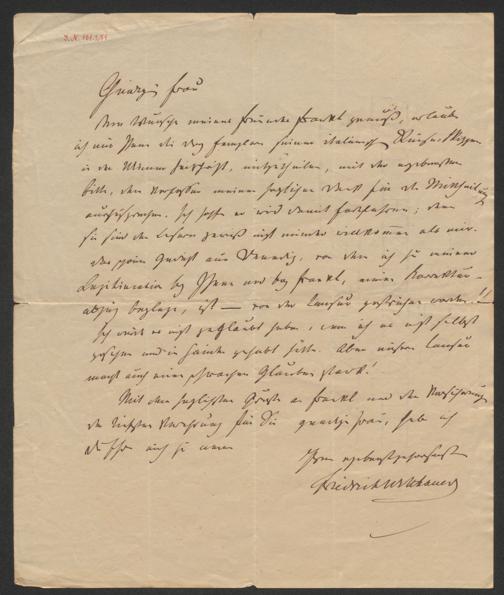 J.N. 161.151
Gnädige Frau
Dem Wunsche meines Freundes Frankl gemäß, erlaube
ich mir Ihnen die drei Exemplare seiner italienischen Reise-Skizzen
in der Wiener Zeitschrift, mitzutheilen, mit der ergebensten
Bitte, dem Verfasser meinen herzlichen Dank für die Mittheilung
auszusprechen. Ich hoffe er wird damit fortfahren; denn
sie sind den Lesern gewiß nicht minder willkommen als mir.
Das Gedicht aus Venedig, von dem ich zu meiner
Legitimation bey Ihnen und bey Frankl, einen Korrektur-
abzug beylege, ist — von der Censur gestrichen worden!!
Ich würde es nicht geglaubt haben, wenn ich es nicht selbst
gesehen und in Händen gehabt hätte. Aber unsere Censur
macht auch einen schwachen Glauben stark!
Mit den herzlichsten Grüßen an Frankl und der Versicherung
der tiefsten Verehrung für Sie gnädige Frau, habe ich
die Ehre auch zu
Ihr ergebenst gehorsamster
Friedrich Witthauer